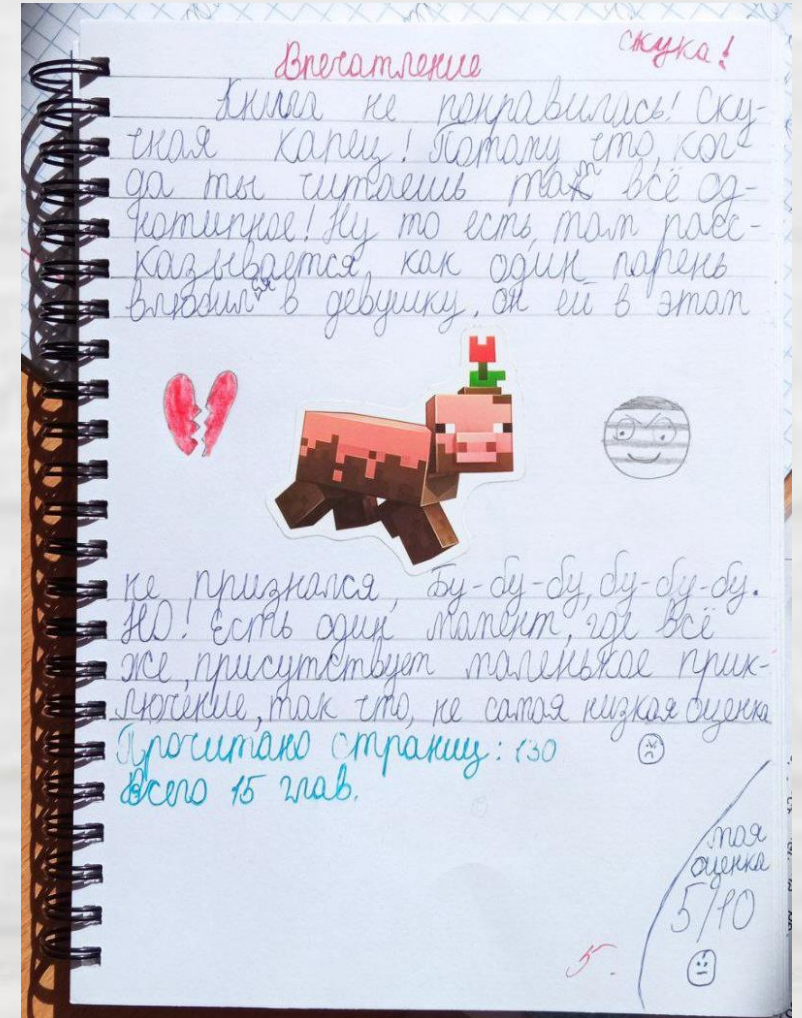 скука!
Впечатление
Книга не понравилась! Ску-
чная капец! Потому что, ког-
да ты читаешь там всё од-
нотипное! Ну то есть, там расс-
казывается, как один парень
влюбился в девушку, он ей в этом
не признался, Бу-бу-бу, бу-бу-бу.
НО! Есть один момент, где всё
же, присутствует маленькое прик-
лючение, так что, не самая низкая оценка
Прочитано страниц: 130
Всего 15 глав.
моя
оценка
5/10
5.